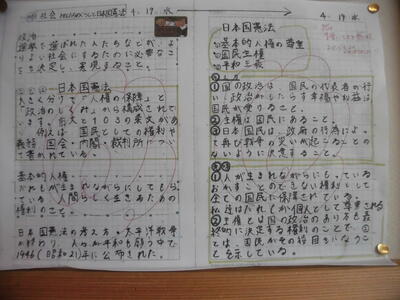 社会 わたしたちのくらしと日本国憲法 4.19.水
政治
選挙で選ばれた人たちなどが、よ
りよい社会にするために必要なこ
とを決定し、実現すること。
日本国憲法
大きく分けて「人権の保障」と
「政治のしくみ」から構成されて
います。前文と103の条文があ
り、例えば国民としての権利や
義務、国会・内閣・裁判所につい
て書かれている。
基本的人権
だれもが生まれながらにしてもっ
ている人間らしく生きるための
権利のこと。
日本国憲法の考え方。太平洋戦争
が終わり、人々が平和を願う中で
1946(昭和21)年に公布された。
4.19.水
日本国憲法
基本的人権の尊重
国民主権
平和主義
①国の政治は、国民の代表者の行
い、政治からもたらす幸福や利益は
国民が受けること。
②主権は国民にあること。
③日本国民は、政府の行為によ
って再び戦争の災いが起こることの
ないように決意すること。
①人が生まれながらにもっている
おかすことのできない権利として
全ての国民に保障されている。
私達はだれもが個人として尊重される
②主権とは国の政治のあり方を最
終的に決定する権利のことで、
とは、国民がその役目をになうこ
とを示している。